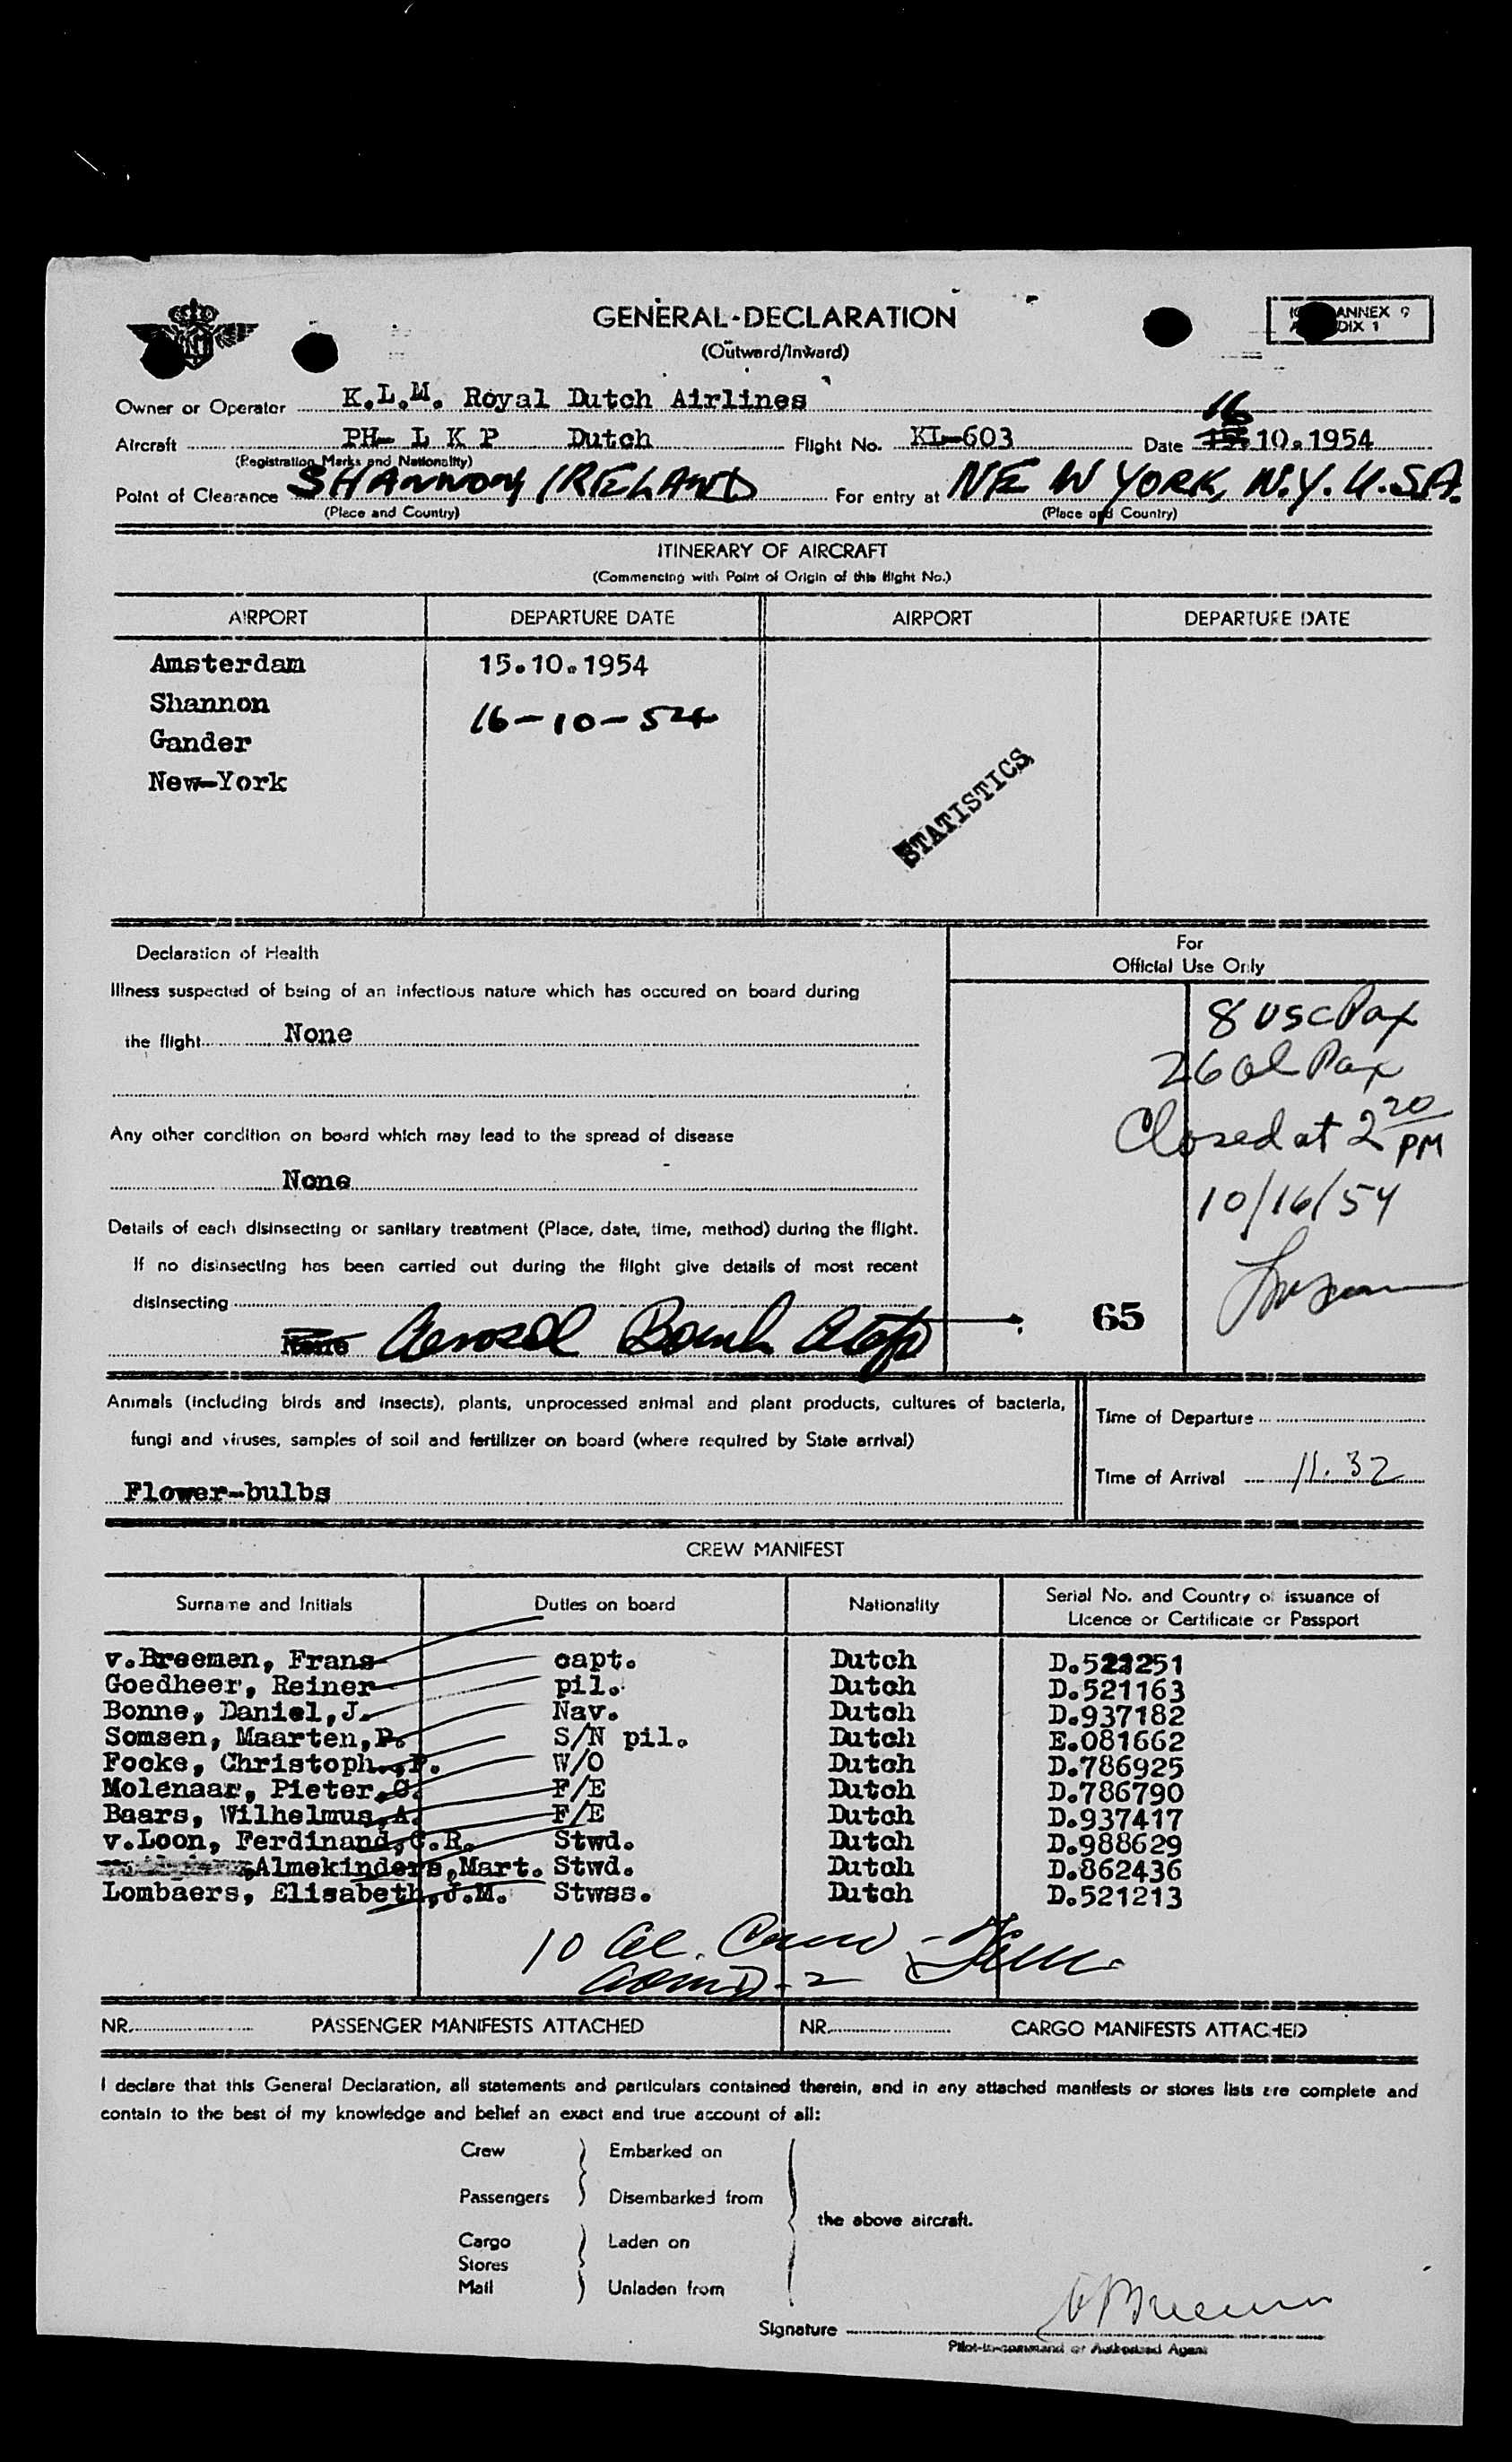 GENERAL-DECLARATION
(Outward/Inward)
ANNEX 9
DIX 1
Owner or Operator K.L.M. Royal Dutch Airlines
16
Aircraft PH- L K P Dutch Flight No. KL-603 Date 15.10.1954
(Registration Marks and Nationality)
Point of Clearance SHANNON IRELAND For entry at NEW YORK, N.Y. U.S.A.
(Place and Country) (Place and Country)
ITINERARY OF AIRCRAFT
(Commencing with Point of Origin of this flight No.)
AIRPORT DEPARTURE DATE AIRPORT DEPARTURE DATE
Amsterdam 15.10.1954
Shannon 16-10-54
Gander
New-York
STATISTICS
Declaration of Health
For
Official Use Only
Illness suspected of being of an infectious nature which has occured on board during
the flight None
8 USC Pax
26 al Pax
Closed at 2 20 PM
10/16/54
Any other condition on board which may lead to the spread of disease
None
Details of each disinsecting or sanitary treatment (Place, date, time, method) during the flight.
If no disinsecting has been carried out during the flight give details of most recent
disinsecting
None Aerosol Bomb
65
Animals (including birds and insects), plants, unprocessed animal and plant products, cultures of bacteria,
fungi and viruses, samples of soil and fertilizer on board (where required by State arrival)
Flower-bulbs
Time of Departure
Time of Arrival 11.32
CREW MANIFEST
Surname and Initials Duties on board Nationality Serial No. and Country of issuance of
Licence or Certificate or Passport
v.Breemen, Frans capt. Dutch D.521251
Goedheer, Reiner pil. Dutch D.521163
Bonne, Daniel,J. Nav. Dutch D.937182
Somsen, Maarten,P. S/N pil. Dutch E.081662
Focke, Christoph.,P. W/O Dutch D.786925
Molenaar, Pieter,C. F/E Dutch D.786790
Baars, Wilhelmus,A. F/E Dutch D.937417
v.Loon, Ferdinand,C.R. Stwd. Dutch D.988629
,Almekinders,Mart. Stwd. Dutch D.862436
Lombaers, Elisabeth,J.M. Stwss. Dutch D.521213
10 al. Crew
Adm D-2
NR. PASSENGER MANIFESTS ATTACHED NR. CARGO MANIFESTS ATTACHED
I declare that this General Declaration, all statements and particulars contained therein, and in any attached manifests or stores lists are complete and
contain to the best of my knowledge and belief an exact and true account of all:
Crew Embarked on
Passengers Disembarked from
the above aircraft.
Cargo Laden on
Stores
Mail Unladen from
Signature
Pilot-in-command or Authorized Agent